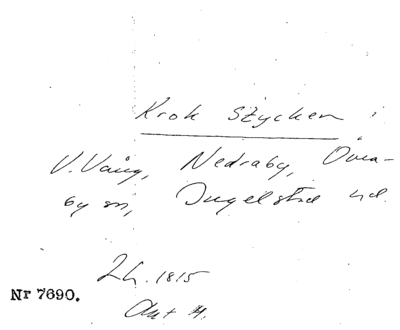 Krok stycken i
V. Vång, Nedraby, Övra-
by sn, Ingelstad hd.
Lh. 1815
Nr 7690.